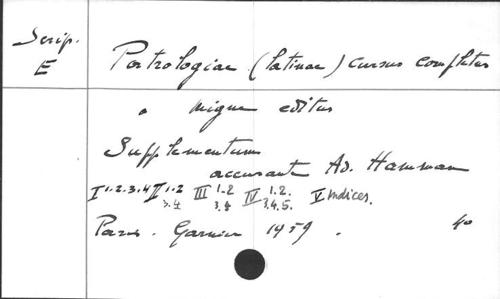 Scrip.
E
Patrologiae (latinae) cursus completus
a Migne editus
Supplementum
accurante Ad. Hamman
I 1.2.3.4 II 1.2 3.4 III 1.2 3.4 IV 1.2. 3.4.5. V Indices.
Paris. Garnier 1959. 4o